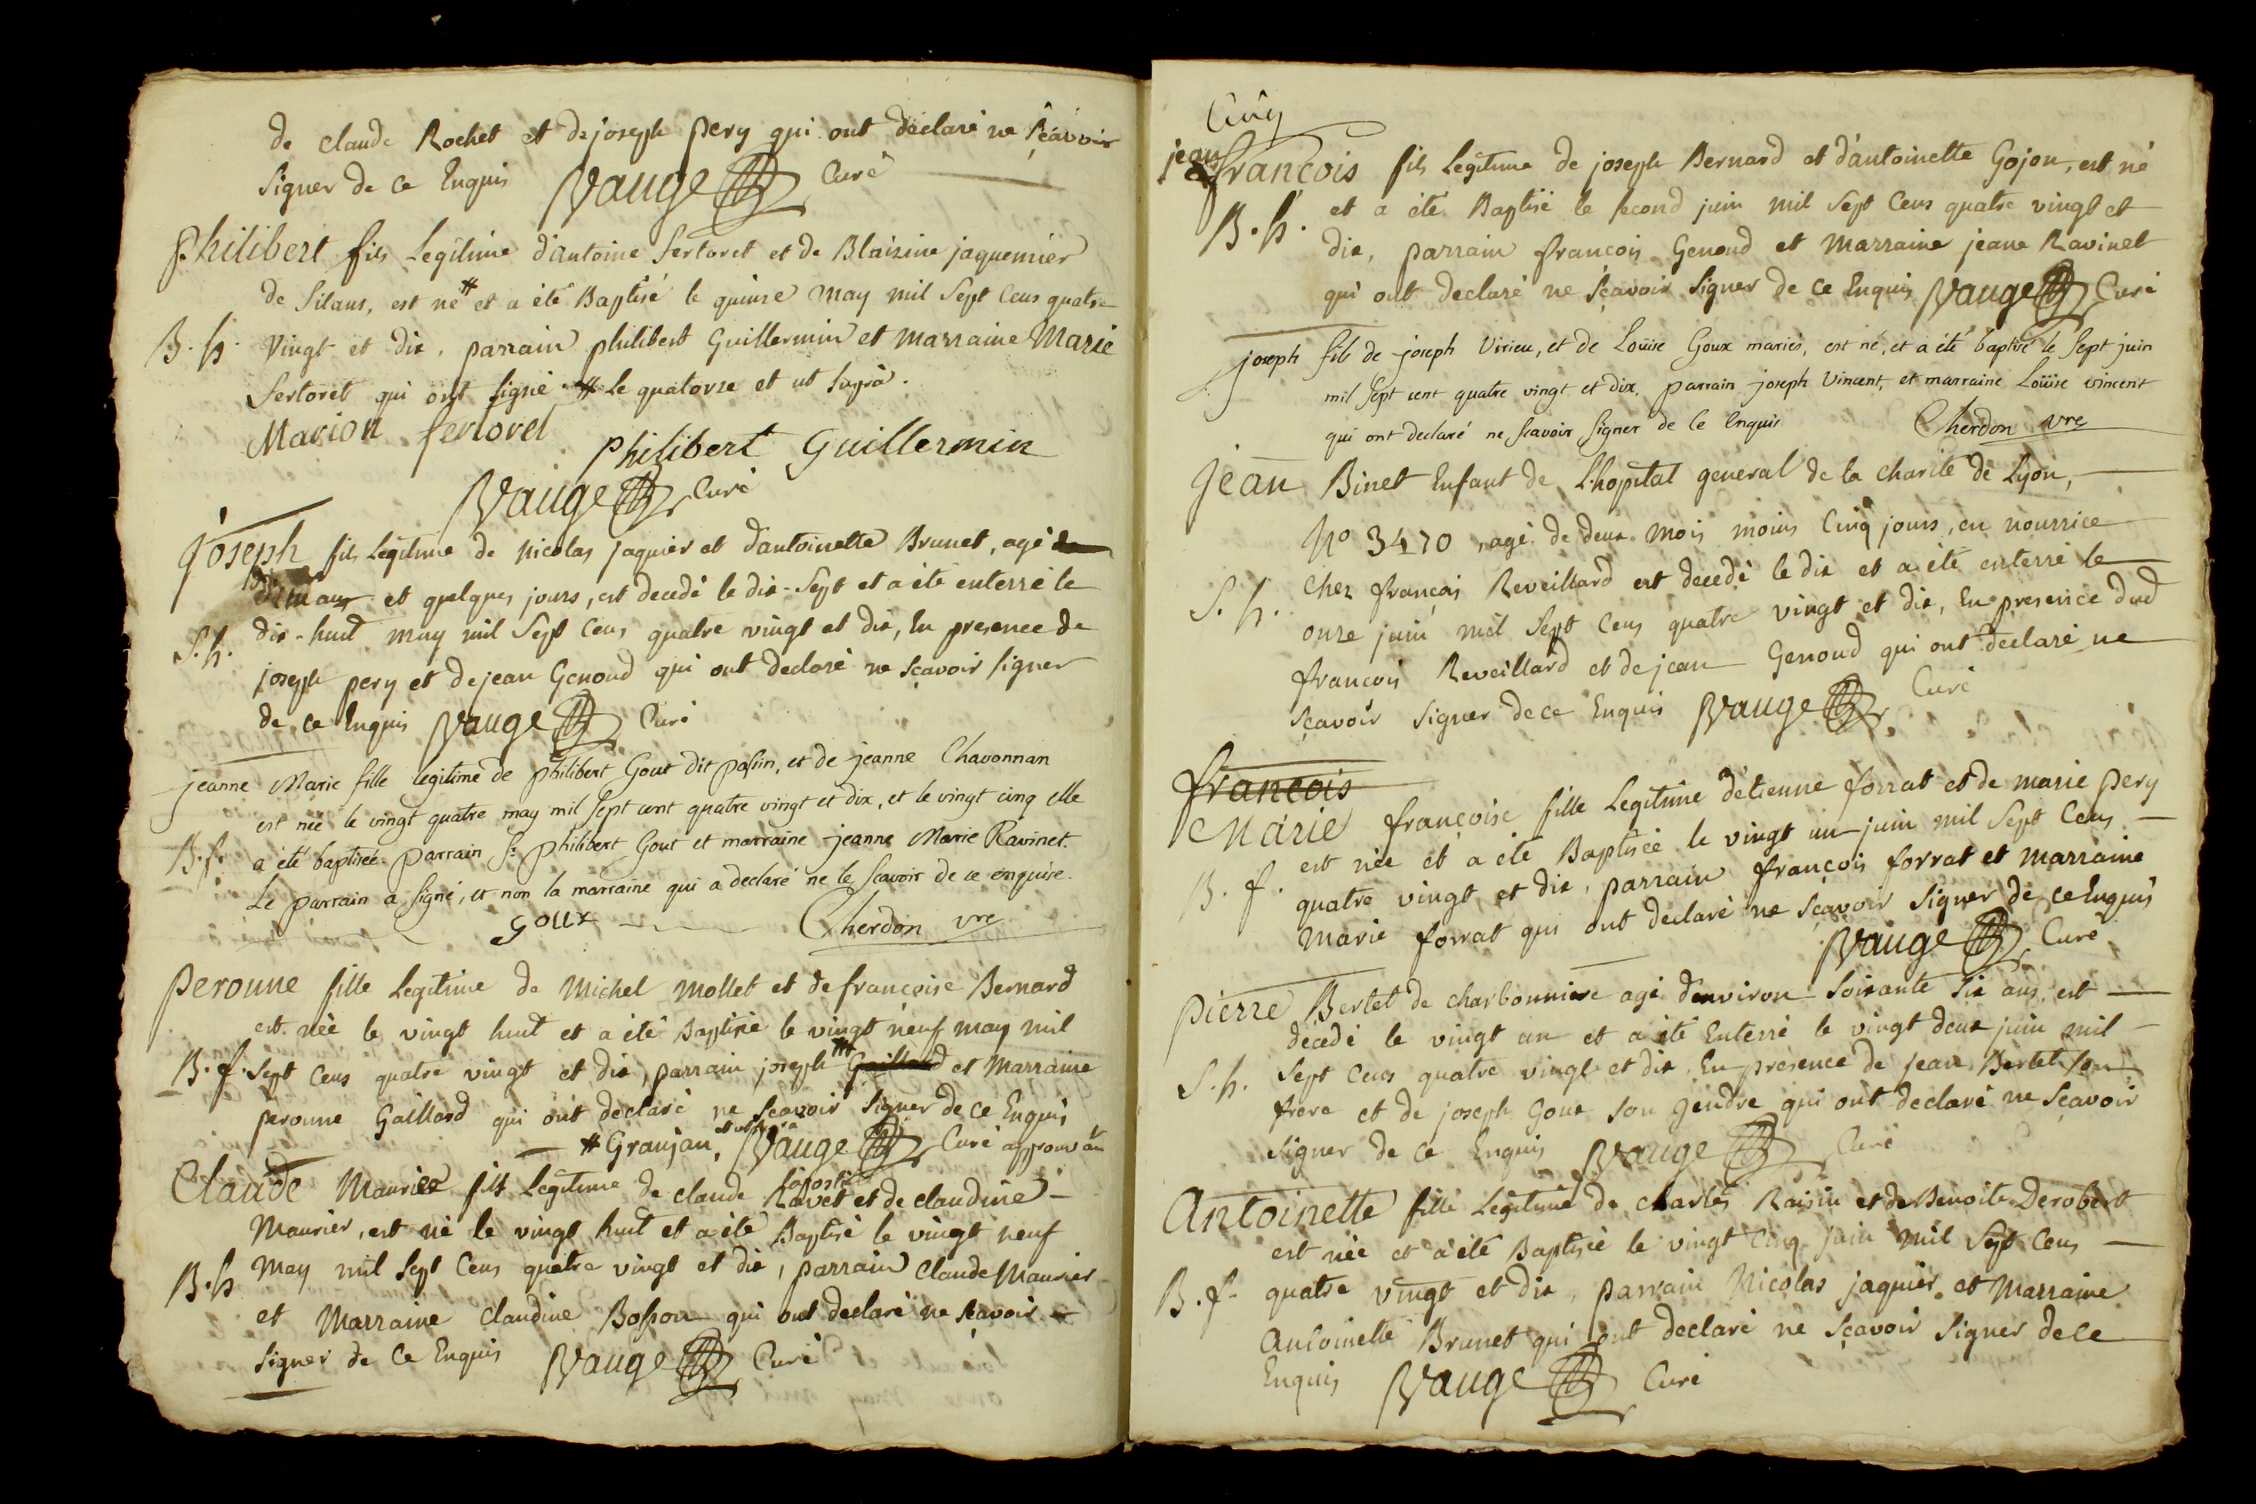 de claude Rochet et de joseph pery qui ont déclaré ne sçavoir
signer de ce Enquis Vauge Curé
philibert fils Legitime d'antoine fertoret et de Blaisine jaquemier
de Silans, est né # et a été Baptisé le quinze may mil sept Cens quatre
B. h. Vingt et dix, parrain philibert Guillermin et marraine Marie
fertoret qui ont signé # Le quatorze et ut supra.
Marion fertoret
philibert Guillermin
Vauge Curé
joseph fils Legitime de nicolas jaquier et d'antoinette Brunet, agé
et quelques jours, est decedé le dix-sept et a été enterré le
S. h. dix-huit may mil sept Cens quatre vingt et dix, En presence de
joseph pery et de jean Genoud qui ont declaré ne sçavoir signer
de ce Enquis Vauge Curé
jeanne Marie fille legitime de philibert Gout dit passin, et de jeanne Chavonnan
est née le vingt quatre may mil sept cent quatre vingt et dix, et le vingt cinq elle
B. f. a été baptisée. parrain Sr philibert Gout et marraine jeanne Marie Ravinet.
Le parrain a signé, et non la marraine qui a declaré ne le sçavoir de ce enquise.
goux Cherdon vre
peronne fille Legitime de Michel Mollet et de francoise Bernard
est née le vingt huit et a été Baptisée le vingt neuf may mil
B. f. sept Cens quatre vingt et dix, parrain joseph # Gaillard et Marraine
peronne Gaillard qui ont declaré ne sçavoir signer de ce Enquis
# Granjan, et ut supra Vauge Curé
Claude Maurier fils Legitime de claude Ravet et de claudine
Maurier, est né le vingt huit et a été Baptisé le vingt neuf
B. h May mil sept Cens quatre vingt et dix, parrain Claude Maurier
et Marraine Claudine Bosson qui ont declaré ne sçavoir
signer de ce Enquis Vauge Curé
Cinq
jean francois fils Legitime de joseph Bernard et d'antoinette Gojon, est né
B. h. et a été Baptisé le second juin mil sept Cens quatre vingt et
dix, parrain francois Genoud et Marraine jeane Ravinet
qui ont declaré ne sçavoir signer de ce Enquis Vauge Curé
joseph fils de joseph Virieu, et de Loüise Goux mariés, est né, et a été baptisé le sept juin
mil sept cent quatre vingt et dix, parrain joseph Vincent, et marraine Loüise vincent
qui ont declaré ne scavoir signer de ce enquis Cherdon vre
jean Binet Enfant de L'hopital general de la charité de Lyon,
No 3470, agé de deux mois moins Cinq jours, en nourrice
S. h. Chez françois Reveillard est decedé le dix et a été enterré le
onze juin mil sept Cens quatre vingt et dix, En presence dud
francois Reveillard et de jean Genoud qui ont declaré ne
sçavoir signer de ce Enquis Vauge Curé
francois
Marie françoise fille Legitime d'étienne forrat et de marie pery
est née et a été Baptisée le vingt un juin mil sept Cens
B. f. quatre vingt et dix, parrain françois forrat et Marraine
marie forrat qui ont declaré ne sçavoir signer de ce Enquis
Vauge Curé
pierre Bertet de charbonniere agé d'environ soixante six ans, est
décédé le vingt un et a été Enterré le vingt deux juin mil
S. h. sept Cens quatre vingt et dix. En presence de jean Bertet son
frere et de joseph Goux son gendre qui ont declaré ne sçavoir
signer de ce Enquis Vauge Curé
Antoinette fille Legitime de charles Raisin et de Benoite Derobert
est née et a été Baptisée le vingt Cinq juin mil sept Cens
B. f. quatre vingt et dix, parrain Nicolas jaquier et Marraine
Antoinette Brunet qui ont declaré ne sçavoir signer de ce
Enquis Vauge Curé